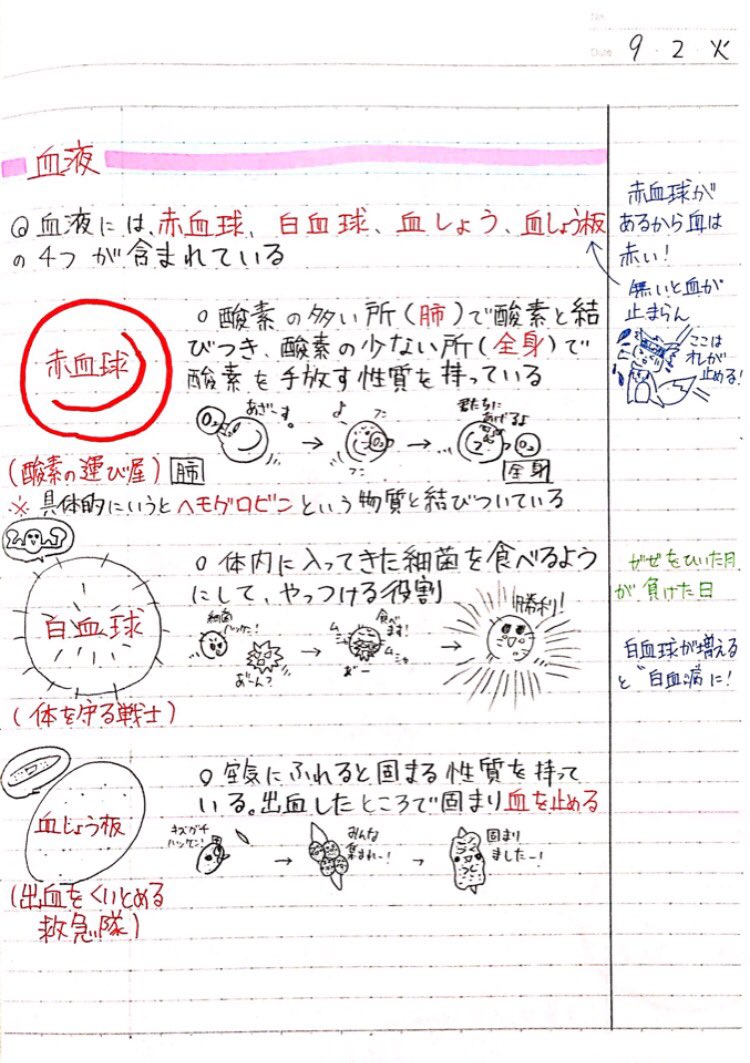 No.
Date 9・2・火
血液
血液には、赤血球、白血球、血しょう、血しょう板
の4つが含まれている
赤血球が
あるから血は
赤い!
無いと血が
止まらん
ここは
オレが
止める!
赤血球
酸素の多い所(肺)で酸素と結
びつき、酸素の少ない所(全身)で
酸素を手放す性質を持っている
O₂
あざーす。
O₂
君たちに
あげるよ
O₂
(酸素の運び屋)
肺
全身
※具体的にいうとヘモグロビンという物質と結びついている
白血球
体内に入ってきた細菌を食べるよう
にして、やっつける役割
細菌
ハッケン!
あ゛ーん?
食べ
ます!
ムシャ
ムシャ
あ゛ー
勝利!
(体を守る戦士)
かぜをひいた日
が負けた日
白血球が増える
と"白血病"に!
血しょう板
空気にふれると固まる性質を持って
いる。出血したところで固まり血を止める
キズガチ
ハッケン!
みんな
集まれー!
固まり
ましたー!
(出血をくいとめる
救急隊)